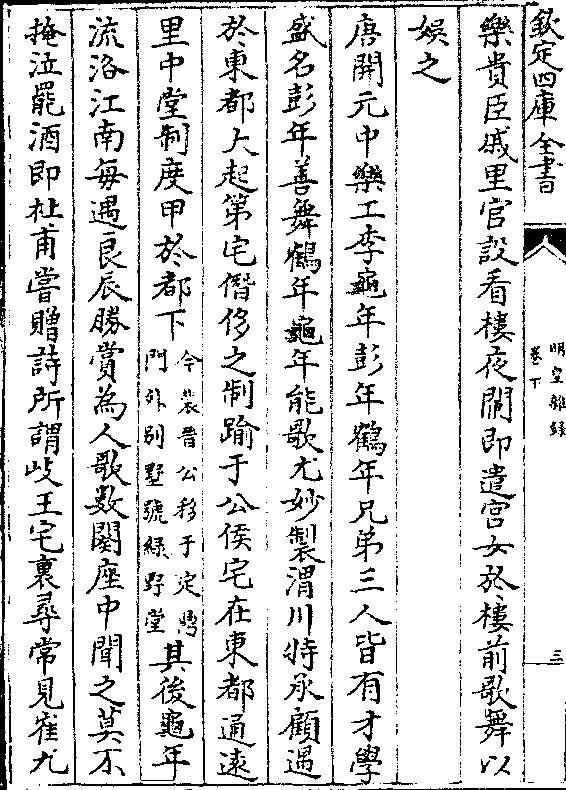 欽定四庫全書
明皇雜録
卷下
三
樂貴臣戚里官設看樓夜闌即遣宮女於樓前歌舞以
娯之
唐開元中樂工李龜年彭年鶴年兄弟三人皆有才學
盛名彭年善舞鶴年龜年能歌尤妙製渭川特承顧遇
於東都大起第宅僭侈之制踰于公侯宅在東都通逺
里中堂制度甲於都下今裴晉公移于定鼎門外别墅號緑野堂其後龜年
流洛江南每遇良辰勝賞為人歌數闋座中聞之莫不
掩泣罷酒即杜甫嘗贈詩所謂岐王宅裏尋常見崔九